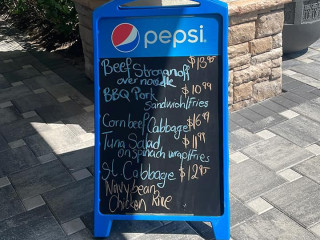 pepsi
Beef Stroganoff $13.95
over noodle
BBQ Pork $10.99
Sandwich/fries
Corn beef Cabbage $16.99
Tuna Salad $11.99
on spinach wrap/fries
St. Cabbage $12.95
Navy bean
Chicken Rice